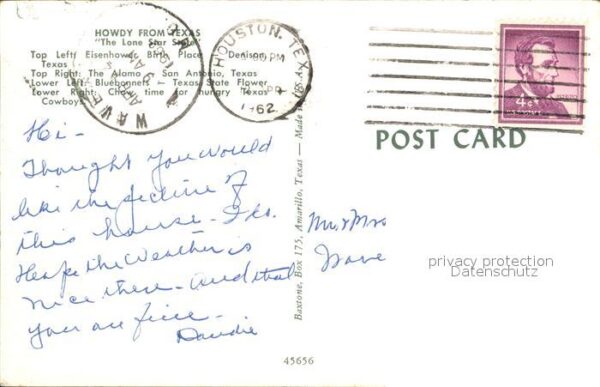 HOWDY FROM TEXAS
"The Lone Star State"
Top Left: Eisenhower Birth Place — Denison,
Texas
Top Right: The Alamo — San Antonio, Texas
Lower Left: Bluebonnets — Texas State Flower
Lower Right: Chow time for hungry Texas
Cowboys.
HOUSTON, TEX
PM
1962
WAVE
4¢
POST CARD
Hi -
Thought you would
like the picture of
this house.
Hope the Weather is
nice there - and that
you are fine.
Mr & Mrs
Baxtone, Box 175, Amarillo, Texas — Made
privacy protection
Datenschutz
45656